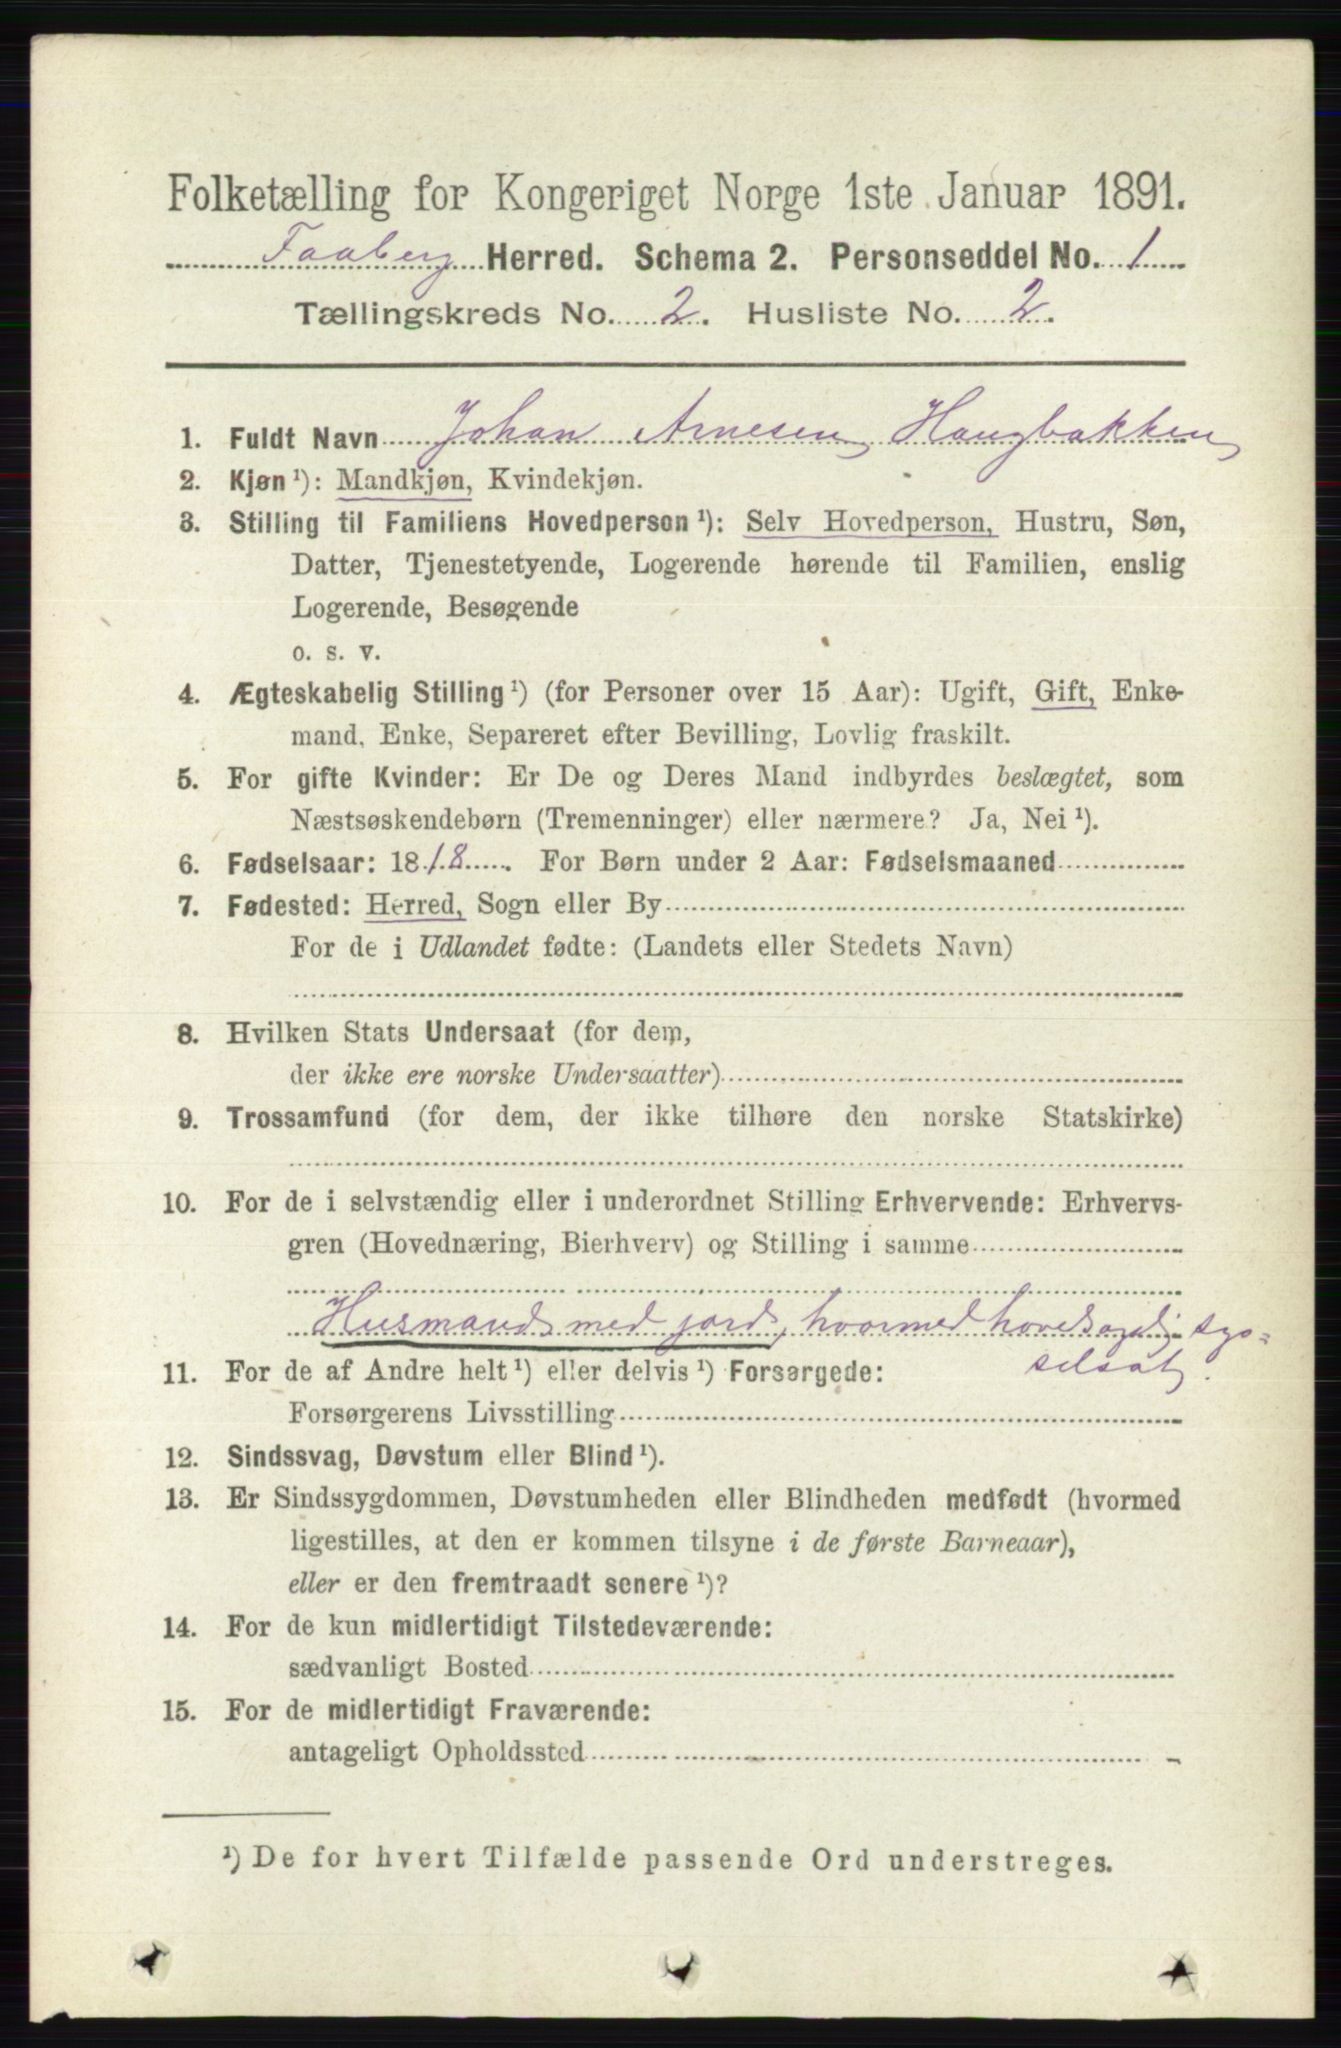 Folketælling for Kongeriget Norge 1ste Januar 1891.
Faaberg Herred. Schema 2. Personseddel No. 1
Tællingskreds No. 2. Husliste No. 2.
1. Fuldt Navn Johan Arnesen Haugbakken
2. Kjøn ¹): Mandkjøn, Kvindekjøn.
3. Stilling til Familiens Hovedperson ¹): Selv Hovedperson, Hustru, Søn,
Datter, Tjenestetyende, Logerende hørende til Familien, enslig
Logerende, Besøgende
o. s. v.
4. Ægteskabelig Stilling ¹) (for Personer over 15 Aar): Ugift, Gift, Enke-
mand, Enke, Separeret efter Bevilling, Lovlig fraskilt.
5. For gifte Kvinder: Er De og Deres Mand indbyrdes beslægtet, som
Næstsøskendebørn (Tremenninger) eller nærmere? Ja, Nei ¹).
6. Fødselsaar: 1818. For Børn under 2 Aar: Fødselsmaaned
7. Fødested: Herred, Sogn eller By
For de i Udlandet fødte: (Landets eller Stedets Navn)
8. Hvilken Stats Undersaat (for dem,
der ikke ere norske Undersaatter)
9. Trossamfund (for dem, der ikke tilhøre den norske Statskirke)
10. For de i selvstændig eller i underordnet Stilling Erhvervende: Erhvervs-
gren (Hovednæring, Bierhverv) og Stilling i samme
Husmand med jord, hvormed hovedsagelig sys=
selsat.
11. For de af Andre helt ¹) eller delvis ¹) Forsørgede:
Forsørgerens Livsstilling
12. Sindssvag, Døvstum eller Blind ¹).
13. Er Sindssygdommen, Døvstumheden eller Blindheden medfødt (hvormed
ligestilles, at den er kommen tilsyne i de første Barneaar),
eller er den fremtraadt senere ¹)?
14. For de kun midlertidigt Tilstedeværende:
sædvanligt Bosted
15. For de midlertidigt Fraværende:
antageligt Opholdssted
¹) De for hvert Tilfælde passende Ord understreges.